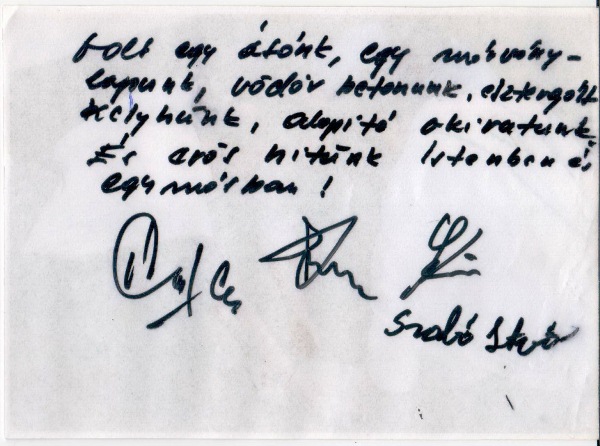 Volt egy ásónk, egy márvány-
lapunk, vödör betonunk, elsztergált
kelyhünk, alapító okiratunk
És erős hitünk Istenben és
egymásban!
Szabó István